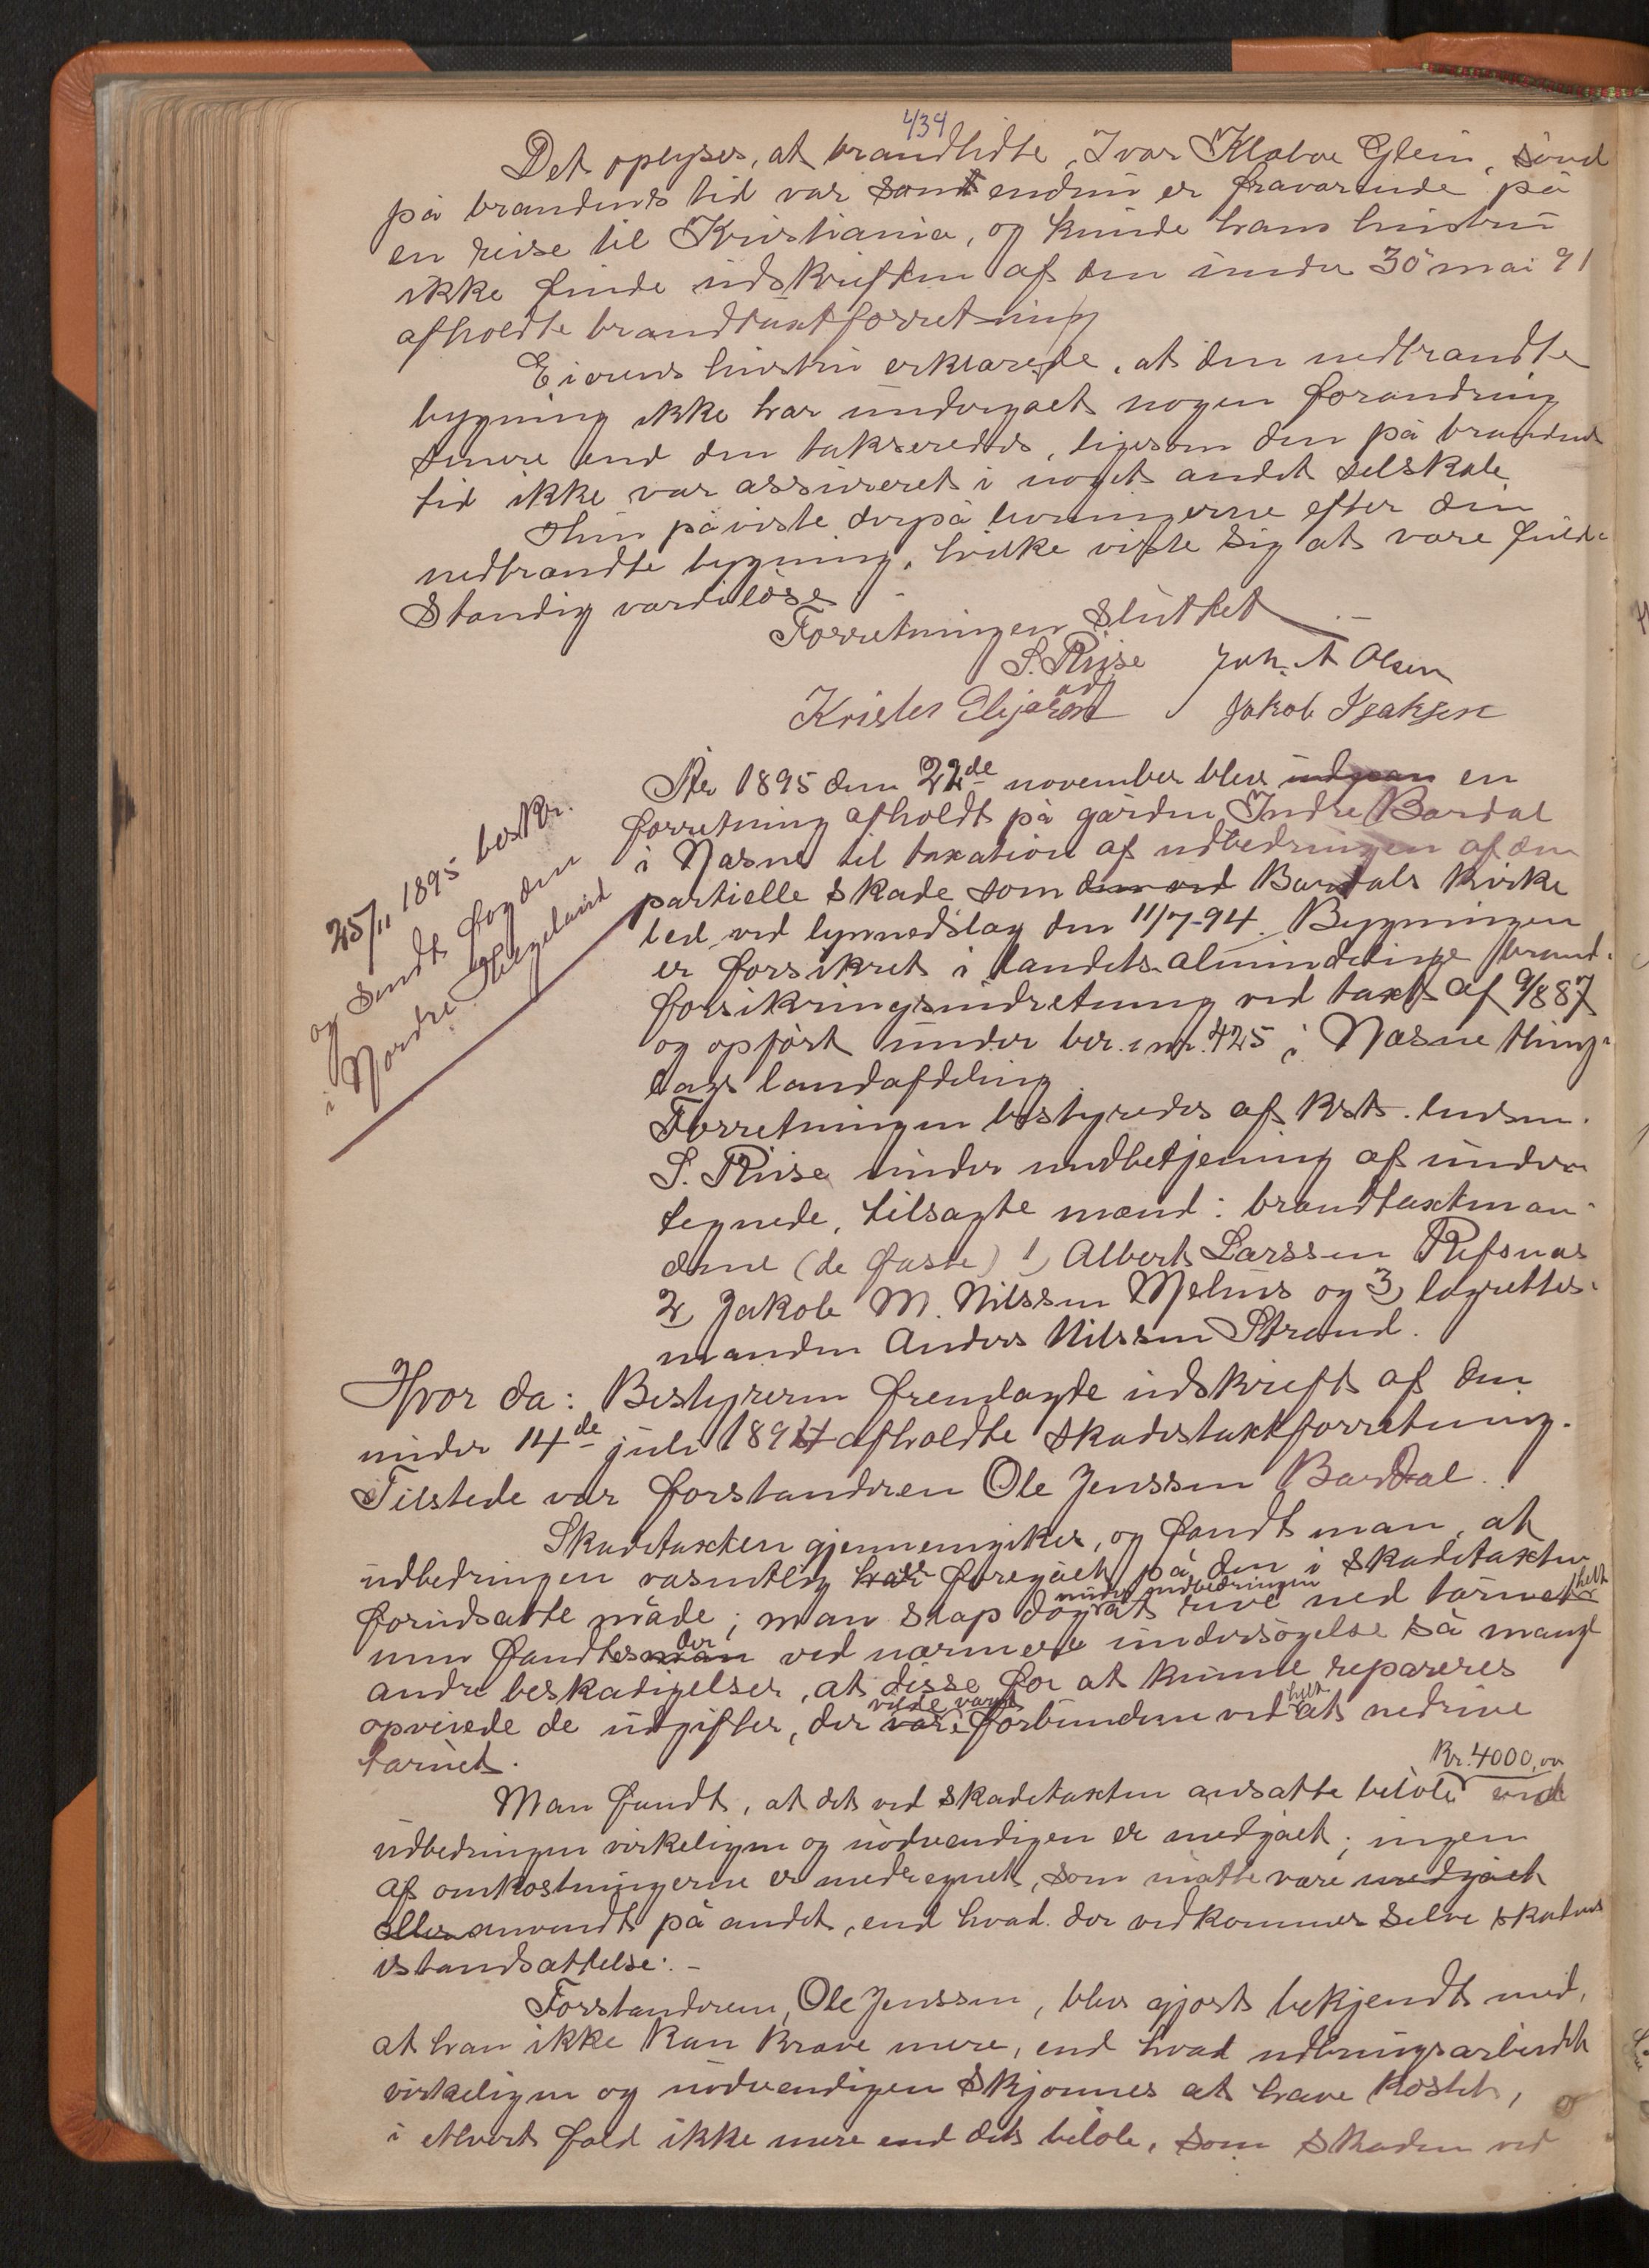 434
Det oplyses, at brandlidte, Ivar Klaboe Glein, såvel
på brandens tid var som endnu er fraværende på
en reise til Kristiania, og kunde hans hustru
ikke finde udskriften af den under 30 mai 91
afholdte brandtaxtforretning
Eierens hustru erklærede, at den nedbrandte
bygning ikke har undergaaet nogen forandring
senere end den takseredes, ligesom den på brandens
tid ikke var assureret i noget andet selskab.
Hun påviste derpå levningerne efter den
nedbrandte bygning, hvilke viste sig at være fuld-
stændig værdiløse.
Forretningen sluttet.-
S. Riise Joh. A Olsen
Krister Jakob Isaksen
25/11 1895 beskr.
og sendt fogden
i Nordre Helgeland
År 1895 den 22de november blev en
forretning afholdt på gården Indre Bardal
i Næsne til taxation af udbedringen af den
partielle skade som den ved Bardals kirke
led ved lynnedslag den 11/7-94. Bygningen
er forsikret i landets almindelige brand-
forsikringsindretning ved taxt af 9/8 87
og opført under ber. nr. 425 i Næsne thing-
lags landafdeling
Forretningen bestyredes af kst. lensm.
S. Riise under medbetjening af under-
tegnede, tilsagte mænd: brandtaxtmæn-
dene (de faste) 1) Albert Larssen Refsnæs
2) Jakob M. Nilssen Melnes og 3) lagrettes-
manden Anders Nilssen Strand.
Hvor da: Bestyreren fremlagde udskrift af den
under 14de juli 1894 afholdte skadestaxtforretning.
Tilstede var forstanderen Ole Jenssen Bardal.
Skadetaxten gjennemgikes, og fandt man, at
udbedringen væsentlig har foregået på den i skadetaxten
forudsatte måde; man slap dog under udbedringen at rive ned tårnet helt
men fandtes man der ved nærmere undersøgelse så mange
andre beskadigelser, at disse for at kunne repareres
opveiede de udgifter, der vare vilde været forbundne ved helt at nedrive
tårnet.
Man fandt, at det ved skadetaxten ansatte beløb Kr. 4000,00 ved
udbedringen virkeligen og nødvendigen er medgået; ingen
af omkostningerne er medregnet, som måtte være medgået
eller anvendt på andet, end hvad der vedkommer selve skadens
istandsættelse.-
Forstanderen, Ole Jenssen, blev gjort bekjendt med,
at han ikke kan kræve mere, end hvad udbringsarbeidet
virkeligen og nødvendigen skjønnes at have kostet,
i ethvert fald ikke mere end det beløb, som skaden ved